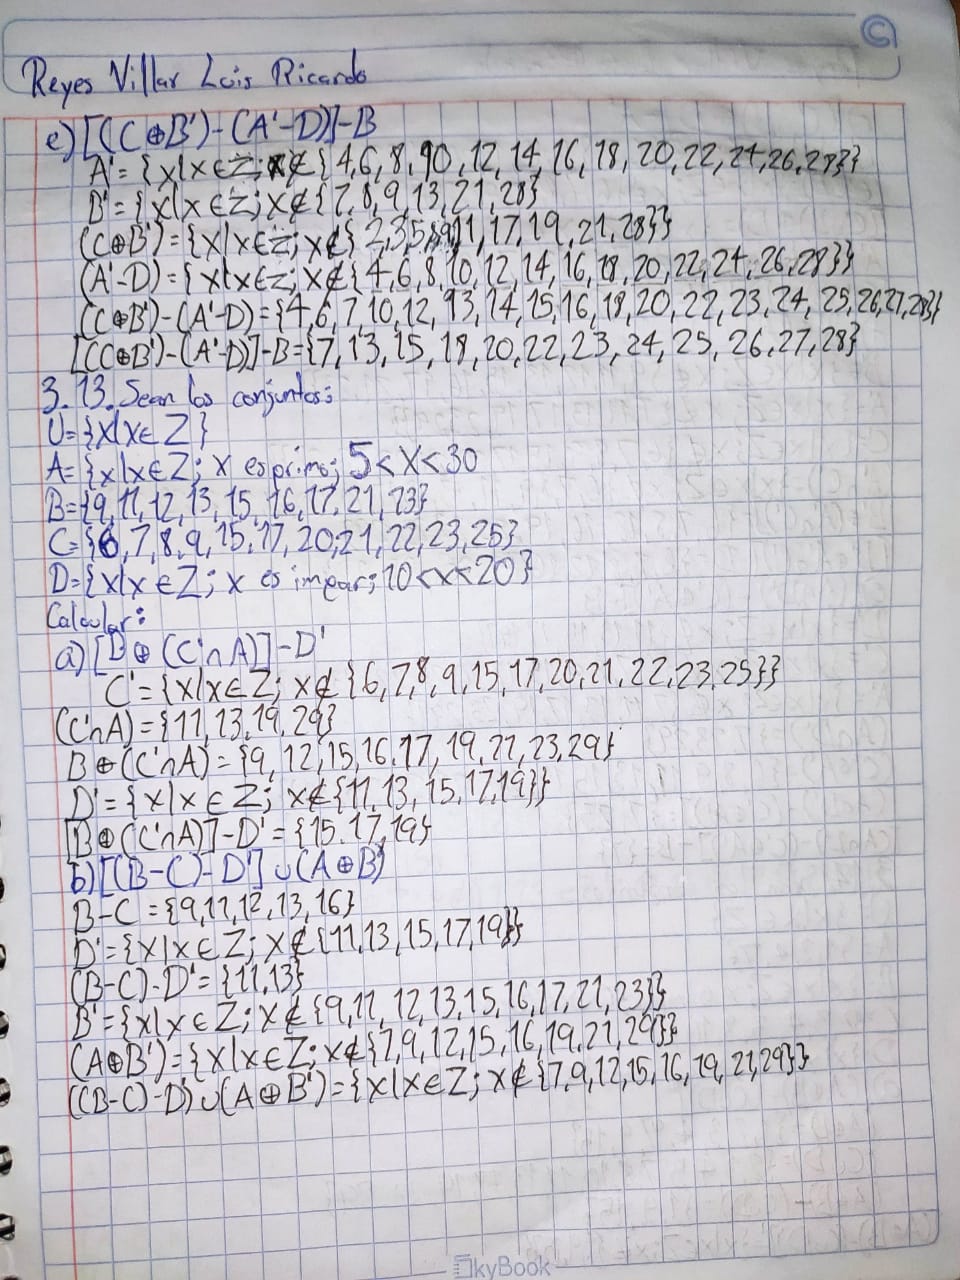 Reyes Villar Luis Ricardo
e) [(C⊕B')-(A'-D)]-B
A' = {x|x∈Z; x∉{4,6,8,10,12,14,16,18,20,22,24,26,28}}
B' = {x|x∈Z; x∉{7,8,9,13,21,28}
(C⊕B')={x|x∈Z; x∉{2,3,5,11,17,19,21,28}}
(A'-D)={x|x∈Z; x∉{4,6,8,10,12,14,16,18,20,22,24,26,28}}
(C⊕B')-(A'-D)={4,6,7,10,12,13,14,15,16,18,20,22,23,24,25,26,27,28}
[(C⊕B')-(A'-D)]-B={7,13,15,18,20,22,23,24,25,26,27,28}
3.13. Sean los conjuntos:
U={x|x∈Z}
A={x|x∈Z; x es primo; 5<x<30
B={9,11,12,13,15,16,17,21,23}
C={6,7,8,9,15,17,20,21,22,23,25}
D={x|x∈Z; x es impar; 10<x<20}
Calcular:
a) [B⊕(C'∩A)]-D'
C'={x|x∈Z; x∉{6,7,8,9,15,17,20,21,22,23,25}}
(C'∩A)={11,13,19,29}
B⊕(C'∩A)={9,12,15,16,17,19,21,23,29}
D'={x|x∈Z; x∉{11,13,15,17,19}}
[B⊕(C'∩A)]-D'={15,17,19}
b) [(B-C)-D']∪(A⊕B')
B-C={9,11,12,13,16}
D'={x|x∈Z; x∉{11,13,15,17,19}}
(B-C)-D'={11,13}
B'={x|x∈Z; x∉{9,11,12,13,15,16,17,21,23}}
(A⊕B')={x|x∈Z; x∉{7,9,12,15,16,19,21,29}}
((B-C)-D')∪(A⊕B')={x|x∈Z; x∉{7,9,12,15,16,19,21,29}}
SkyBook